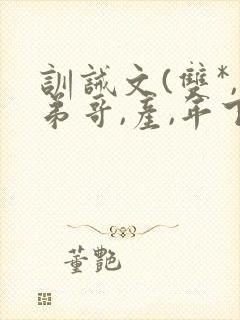 訓誡文(雙*,
弟哥,產,年下
董艷